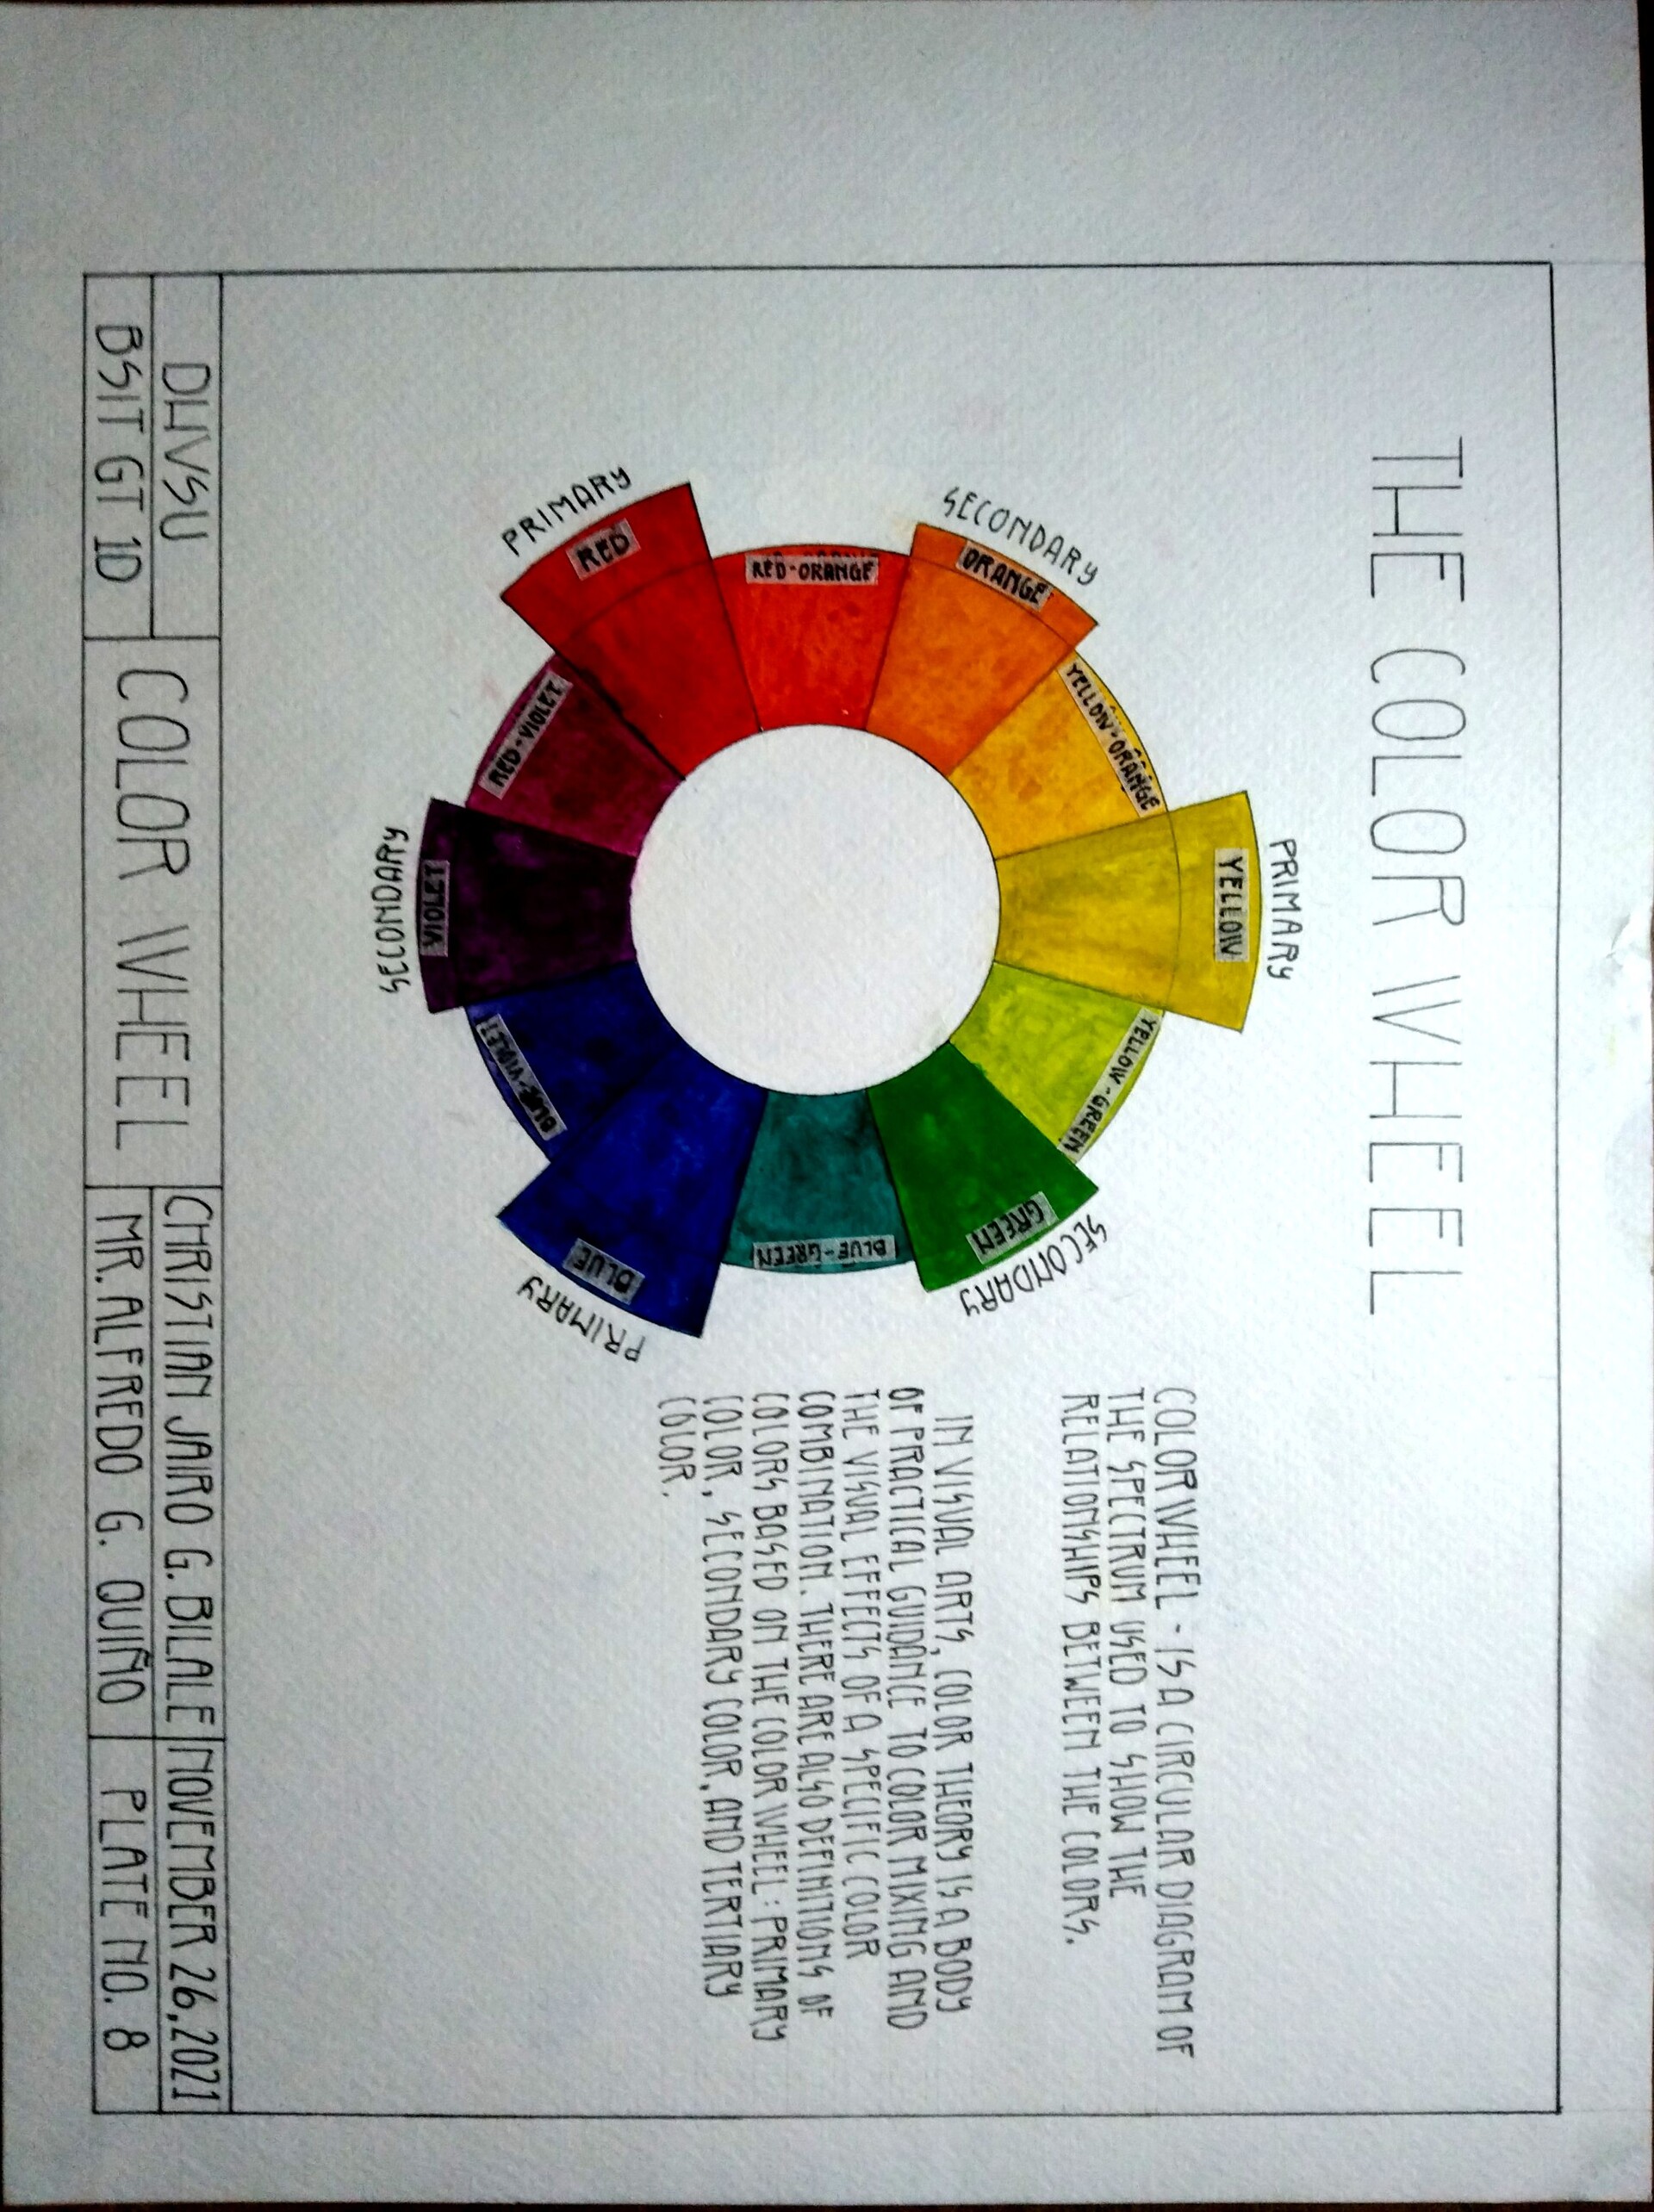 THE COLOR WHEEL
PRIMARY
YELLOW
YELLOW-GREEN
SECONDARY
GREEN
BLUE-GREEN
PRIMARY
BLUE
BLUE-VIOLET
SECONDARY
VIOLET
RED-VIOLET
PRIMARY
RED
RED-ORANGE
SECONDARY
ORANGE
YELLOW-ORANGE
COLOR WHEEL - IS A CIRCULAR DIAGRAM OF
THE SPECTRUM USED TO SHOW THE
RELATIONSHIPS BETWEEN THE COLORS.
IN VISUAL ARTS, COLOR THEORY IS A BODY
OF PRACTICAL GUIDANCE TO COLOR MIXING AND
THE VISUAL EFFECTS OF A SPECIFIC COLOR
COMBINATION. THERE ARE ALSO DEFINITIONS OF
COLORS BASED ON THE COLOR WHEEL: PRIMARY
COLOR, SECONDARY COLOR, AND TERTIARY
COLOR.
DHVSU
BSIT GT 1D
COLOR WHEEL
CHRISTIAN JAIRO G. BILALE
MR. ALFREDO G. QUIÑO
NOVEMBER 26, 2021
PLATE NO. 8